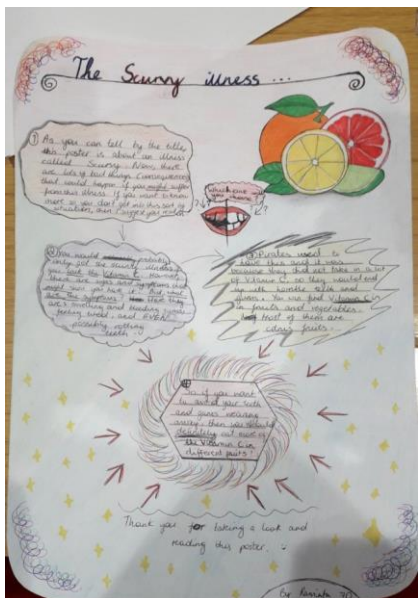 The Scurvy illness...
① As you can tell by the title,
this poster is about an illness
called Scurvy. Now, there
are lots of bad things (consequences)
that would happen if you might suffer
from this illness. If you want to know
more so you don't get into this sort of
situation, then I suggest you read
which one will
you choose
② You would probably
only get the scurvy illness if
you lack the Vitamin C. However,
there are signs and symptoms that
might show you have it. But, what
are the symptoms? Here they
are: swelling and bleeding gums,
feeling weak, and EVEN
possibly rotting
teeth.
③ Pirates used to
have this and it was
because they did not take in a lot
of Vitamin C, so they would end
up with horrible teeth and
gums. You can find Vitamin C
in fruits and vegetables.
Most of them are
citrus fruits.
④
So if you want
to avoid your teeth
and gums
away, then you should
definitely eat more of
the Vitamin C in
different fruits!
Thank you for taking a look and
reading this poster.
By